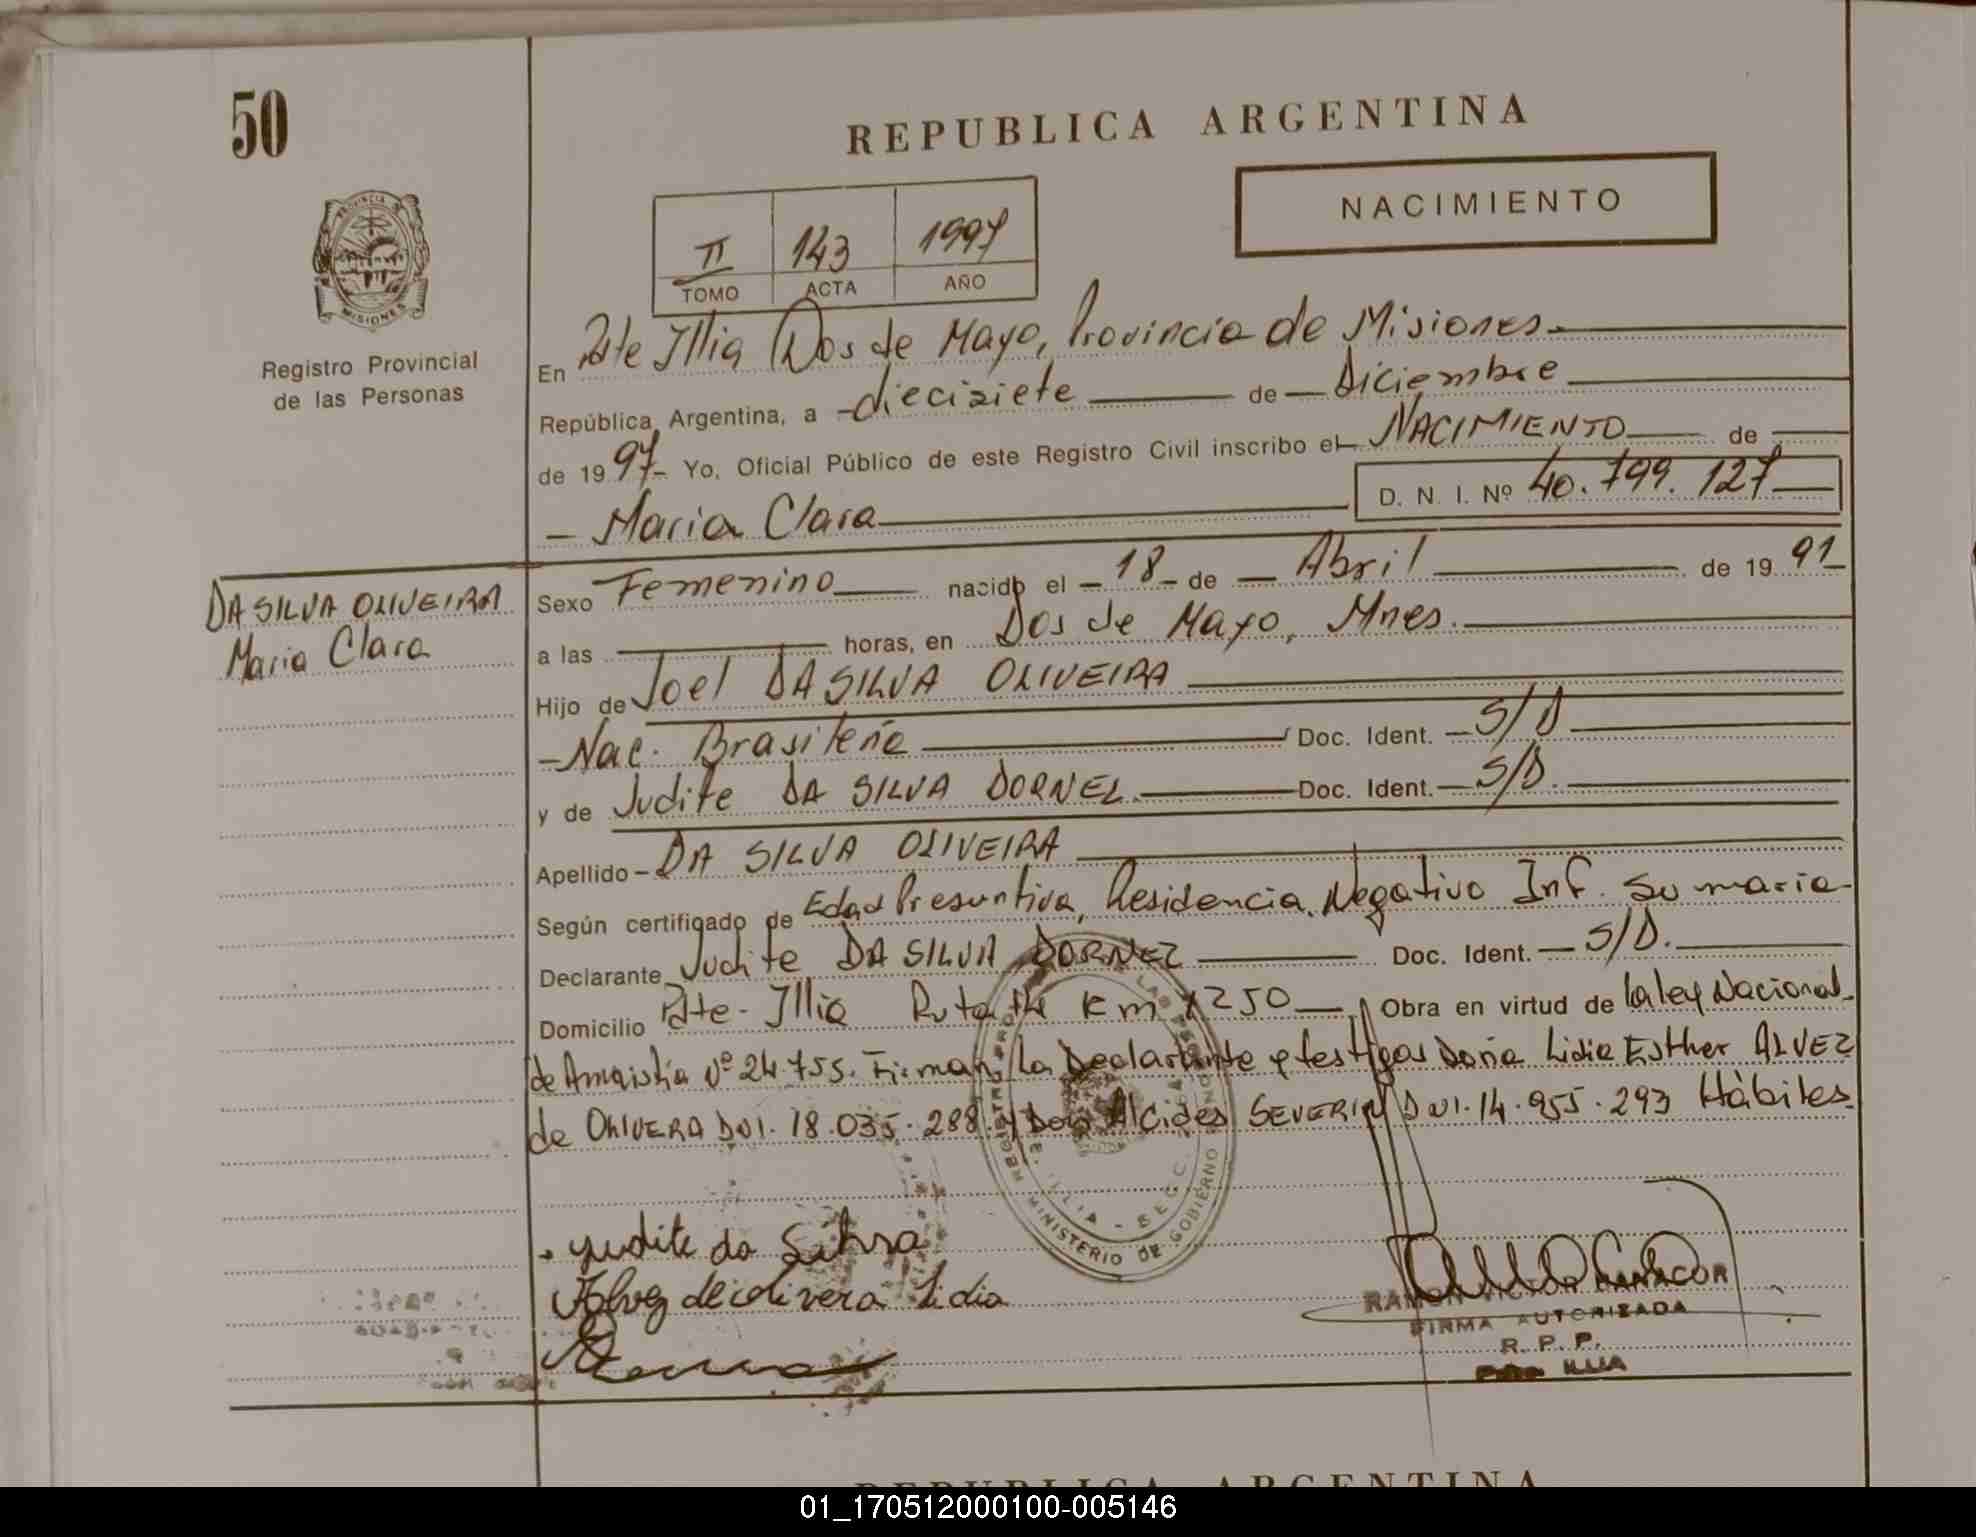 50
REPUBLICA ARGENTINA
NACIMIENTO
II 143 1997
TOMO ACTA AÑO
PROVINCIA DE MISIONES
Registro Provincial
de las Personas
En Pdte Illia Dos de Mayo, Provincia de Misiones
República Argentina, a dieciziete de Diciembre
de 1997 Yo, Oficial Público de este Registro Civil inscribo el NACIMIENTO de
Maria Clara D. N. I. Nº 40.799.127
DA SILVA OLIVEIRA
Maria Clara
Sexo Femenino nacido el 18 de Abril de 1991
a las horas, en Dos de Mayo, Mnes.
Hijo de Joel DA SILVA OLIVEIRA
Nac. Brasileña Doc. Ident. S/D
y de Judite DA SILVA DORNEL Doc. Ident. S/D.
Apellido DA SILVA OLIVEIRA
Según certificado de Edad Presuntiva, Residencia, Negativo Inf. Sumaria
Declarante Judite DA SILVA DORNEZ Doc. Ident. S/D.
Domicilio Pdte. Illia Ruta 14 Km 1250 Obra en virtud de la ley Nacional
de Amnistía Nº 24.755. Firman, la Declarante y testigos Doña Lidia Esther ALVEZ
de OLIVERA DNI. 18.035.288 y Don Alcides SEVERIN DNI. 14.955.293 Hábiles
MINISTERIO DE GOBIERNO
judite da Silva
Alvez de olivera Lidia
RAMON VICTOR
FIRMA AUTORIZADA
R. P. P.
ILLIA
REPUBLICA ARGENTINA
01_170512000100-005146